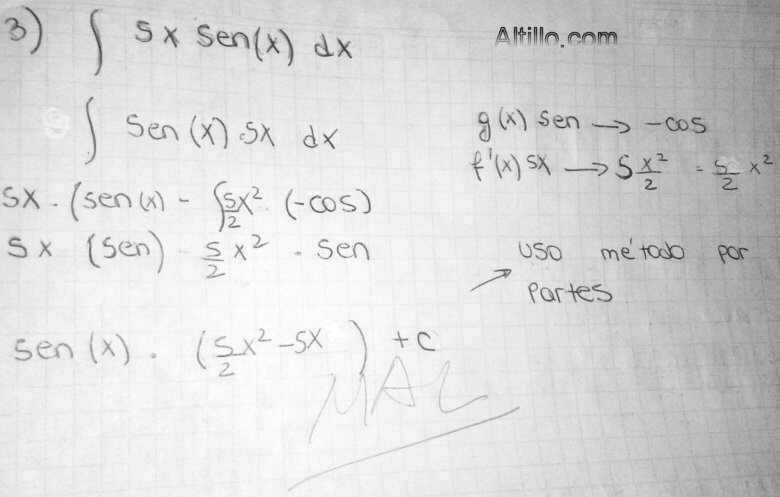 3) ∫ 5x sen(x) dx
Altillo.com
∫ sen(x) 5x dx
g(x) sen → -cos
f'(x) 5x → 5 x²/2 = 5/2 x²
5x . (sen(x) - ∫ 5/2 x² (-cos)
5x (sen) - 5/2 x² . sen
uso método por
→ partes
sen(x) . (5/2 x² - 5x) + c
MAL